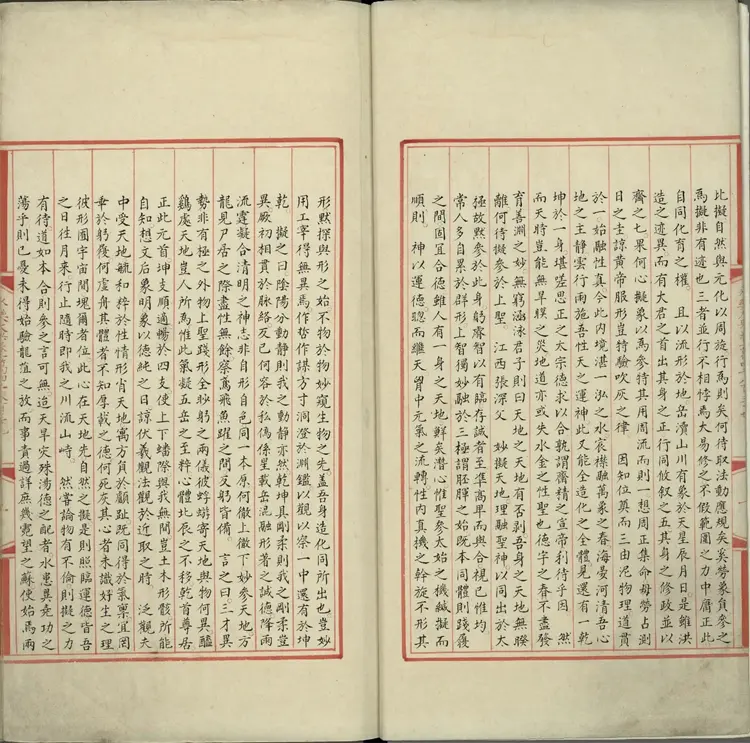 比擬自然與元化以周旋行焉則矣何待取法動應規矣矣勞象負參之
焉擬非有迹也三者並行不相悖焉大易修之不假範圍之力中膺正此
自同化育之權 且以流形於地岳瀆山川有象於天星辰月日是雖洪
造之迹異而有大君之首出其身之正行同攸叙之五其身之修政並以
齊之七果何心擬象以焉參特其用周流而則一想周正集命毋勞占測
日之圭諒黄帝服形豈特驗吹灰之律 因知位英而三由泥物理道貫
於一始融性真今此内境湛一泓之水宸襟融萬象之春海晏河清吾心
地之主靜雲行雨施吾性天之運神此又能全造化之全體見還有一乾
坤於一身堪嗟思正之太宗德求以合孰謂齋精之宣帝利待乎因 然
而天時豈能無旱暵之災地道亦或失水金之性聖也德字之春不盡發
育善淵之妙無窮涵泳君子則曰天地之天地有否剥吾身之天地無暌
離何待擬參於上聖 江西張深父 妙擬天地理融聖神以同出於太
極故默參於此身躬睿智以有臨存誠者至準高卑而與合視已惟均
常人多自累於群形上智獨妙融於三極謂胚腪之始既本同體則踐履
之間固宜合德雖人有一身之天地鮮矣潛心惟聖參太始之機緘擬而
順則 神以運德聰而繼天胷中元氣之流轉性内真機之斡旋不形其
形默探與形之始不物於物妙窺生物之先蓋吾身造化同所出也豈妙
用工宰得無異焉作哲作謀方寸洞澄於淵鑑以觀以察一中還有於坤
乾 擬之曰陰陽分動靜則我之動靜亦然乾坤具剛柔則我之剛柔豈
異厥初相貫於脉絡反已何容於私僞係星載岳流融形者之誠德降雨
流霆擬合清明之神志非自形自色同一本原何徹上徹下妙參天地方
龍見尸居之際盡性無餘察鳶飛魚躍之間反躬皆備 言之曰三才異
勢非有極之外物上聖踐形全妙躬之兩儀彼蜉蝣寄天地與物何異醯
鷄處天地豈人所焉惟此氣凝五岳之至粹心體北辰之不移乾首尊居
正此元首坤支順適暢於四支使上下蟠際與我無間豈土木形骸所能
自知想文后象明象以德純之日諒伏羲觀法觀於近取之時 泛觀夫
中受天地毓和粹於性情形肖天地寓方負於顱趾既同得於氣稟宜罔
乖於躬履何虚舟其體者不知厚載之德何死灰其心者未識好生之理
彼形囿宇宙間塊爾者位此心在天地先自然之擬是則照臨運德皆吾
之日往月來行止隨時即我之川流山峙。 然嘗論物有不倫則擬之力
有待道如本合則參之言可無迨天旱灾殊湯德之配者水患異堯功之
蕩乎則已憂未得始驗龍蓰之故而事責過詳無幾霓望之蘇使始焉兩